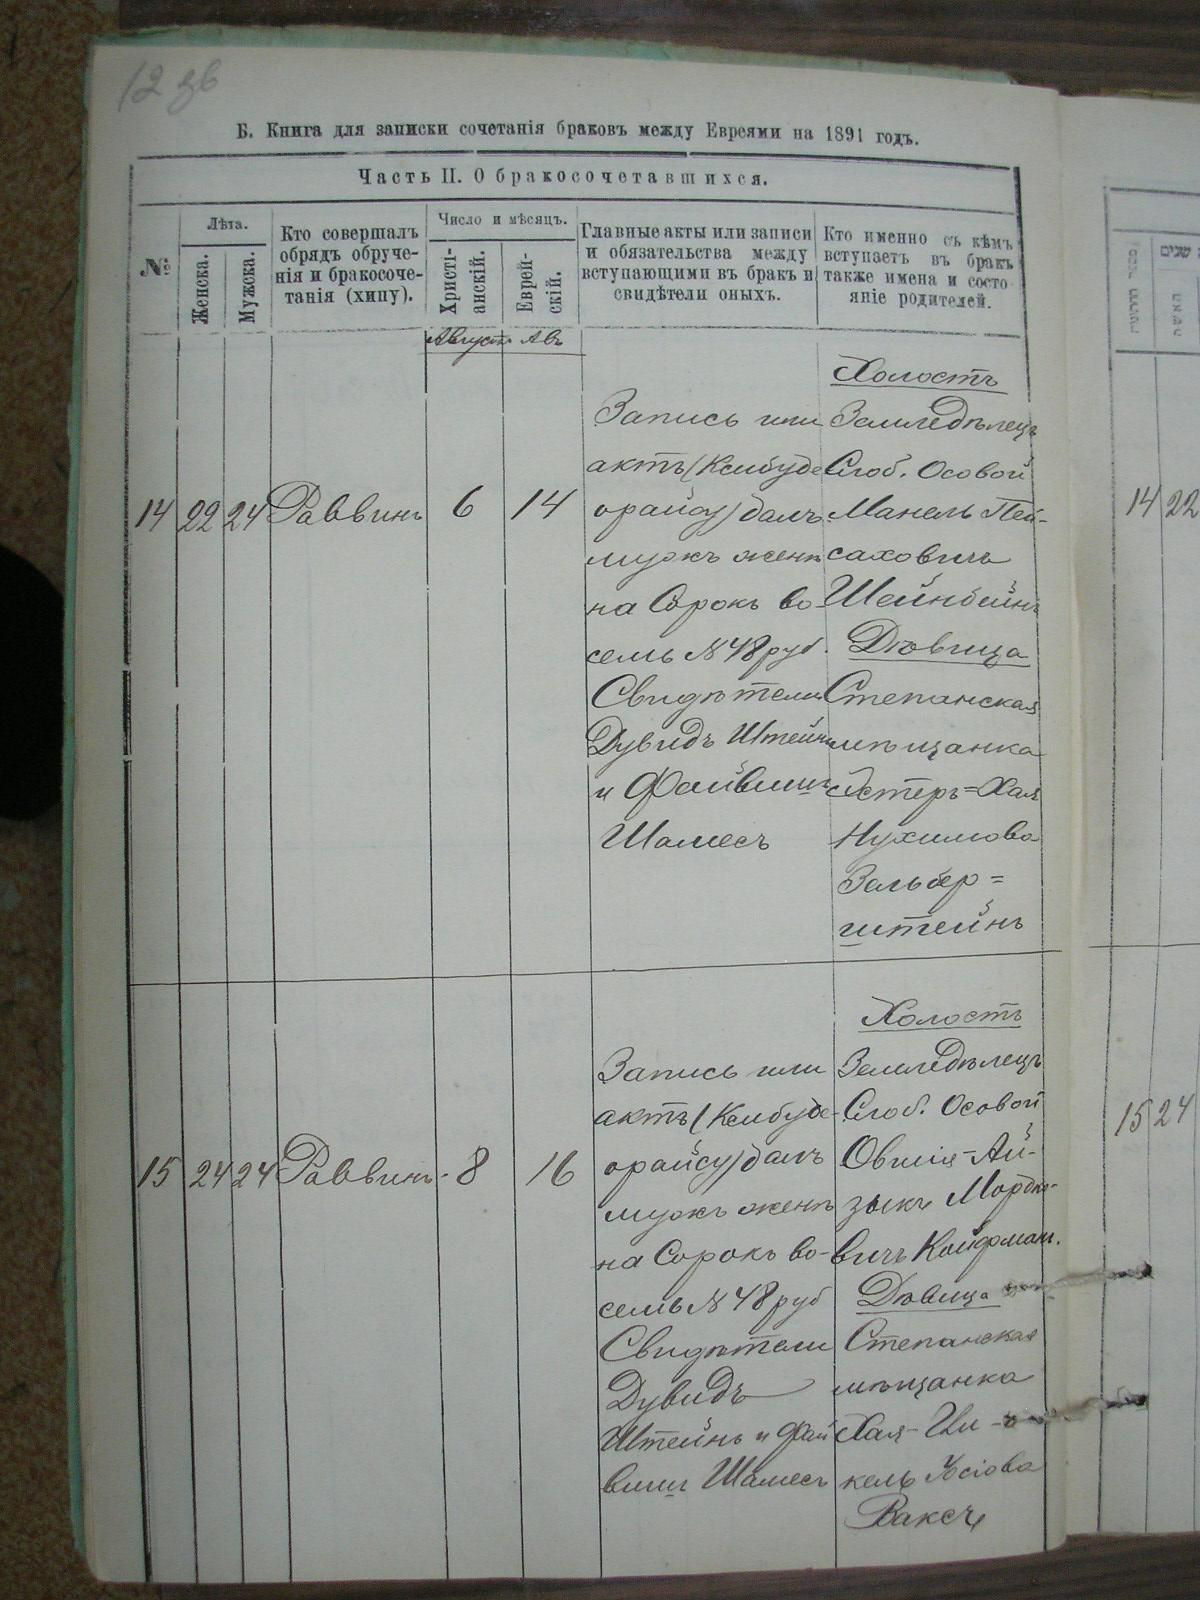 12 зв
Б. Книга для записки сочетанія браковъ между Евреями на 1891 годъ.
Часть II. О бракосочетавшихся.
№
Лѣта.
Женска.
Мужска.
Кто совершалъ
обрядъ обруче-
нія и бракосоче-
танія (хипу).
Число и мѣсяцъ.
Христі-
анскій.
Еврей-
скій.
Главные акты или записи
и обязательства между
вступающими въ бракъ и
свидѣтели оныхъ.
Кто именно съ кѣмъ
вступаетъ въ бракъ
также имена и состо-
яніе родителей.
Августъ Авъ
14 22 24 Раввинъ 6 14
Запись или
актъ (Ксибуде
орайсу) далъ
мужъ женѣ
на Сорокъ во-
семь № 48 руб.
Свидѣтели
Дувидъ Штейнъ
и Файвишъ
Шамесъ
Холостъ
Земледѣлецъ
Слоб. Осовой
Манель Пей-
саховичъ
Шейнбейнъ
Дѣвица
Степанская
мѣщанка
Эстеръ=Хая
Нухимова
Зильбер=
штейнъ
15 24 24 Раввинъ 8 16
Запись или
актъ (Ксибуде-
орайсу) далъ
мужъ женѣ
на Сорокъ во-
семь № 48 руб
Свидѣтели
Дувидъ
Штейнъ и Фай
вишъ Шамесъ
Холостъ
Земледѣлецъ
Слоб. Осовой
Овшія-Ай-
зыкъ Мордко-
вичъ Койфман.
Дѣвица
Степанская
мѣщанка
Хая-Ци-
кель Іосіова
Ваксъ
14 22
15 24